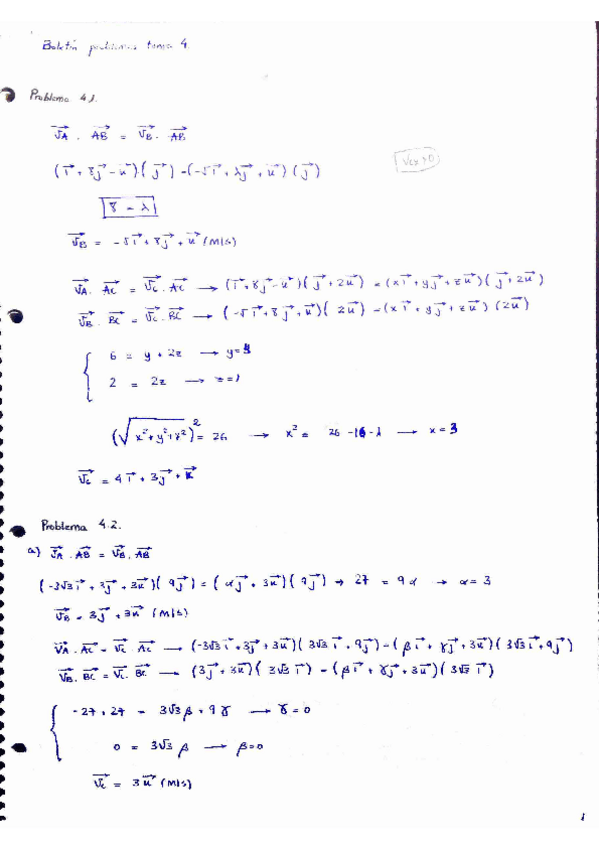 Boletín problemas tema 4.
Problema 4.1.
VA · AB = VB · AB
(i + 8j - u)·(j) = (-5i + λj + u)(j)
Vcx > 0
8 = λ
VB = -5i + 8j + u (m/s)
VA · AC = VC · AC → (i + 8j - u)(j + 2u) = (xi + yj + zu)(j + 2u)
VB · BC = VC · BC → (-5i + 8j + u)(2u) = (xi + yj + zu)(2u)
6 = y + 2z → y = 4
2 = 2z → z = 1
(√x²+y²+z²)² = 26 → x² = 26 - 16 - 1 → x = 3
VC = 4i + 3j + k
Problema 4.2.
a) VA · AB = VB · AB
(-3√3 i + 3j + 3u)(9j) = (αj + 3u)(9j) → 27 = 9α → α = 3
VB = 3j + 3u (m/s)
VA · AC = VC · AC → (-3√3 i + 3j + 3u)(3√3 i + 9j) = (βi + γj + 3u)(3√3 i + 9j)
VB · BC = VC · BC → (3j + 3u)(3√3 i) = (βi + γj + 3u)(3√3 i)
-27 + 27 = 3√3 β + 9γ → γ = 0
0 = 3√3 β → β = 0
VC = 3u (m/s)
1